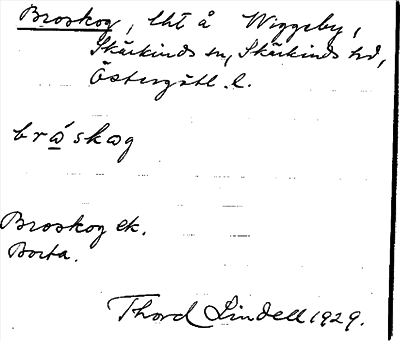 Broskog, lht å Wiggeby,
Skärkinds sn, Skärkinds hd,
Östergötl. l.
bråskog
Broskog ek.
Borta.
Thord Lindell 1929.